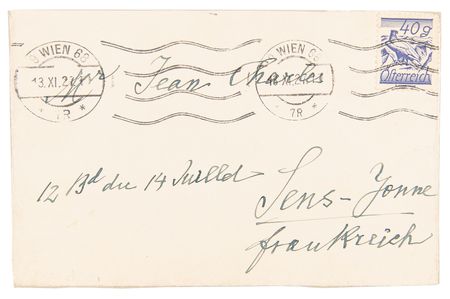 9 WIEN 68
13. XI. 2
7R
9 WIEN
7R
40g
Österreich
Mr Jean Charles
12 Bd du 14 Juillet
Sens-Yonne
Frankreich